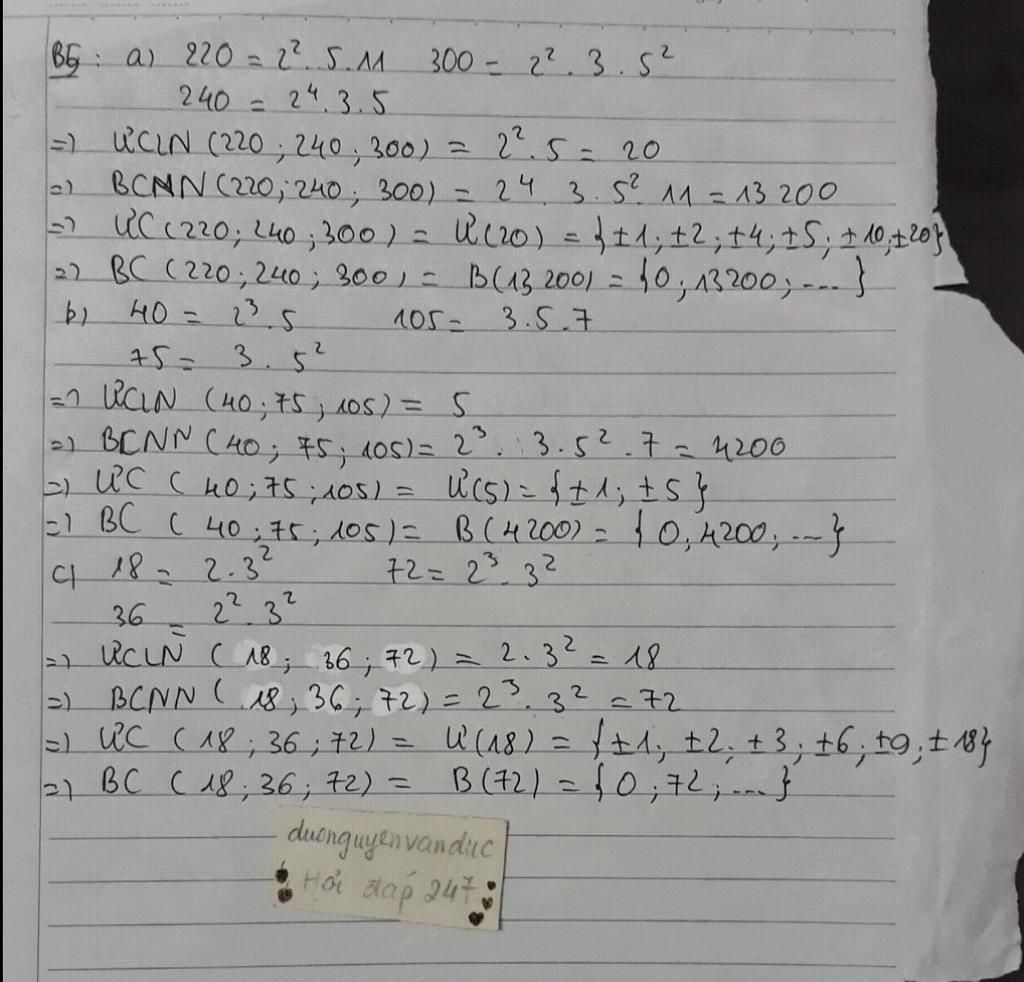 B5: a) 220 = 2². 5. 11 300 = 2². 3. 5²
240 = 2⁴. 3. 5
=) ƯCLN (220; 240; 300) = 2². 5 = 20
=) BCNN (220; 240; 300) = 2⁴. 3. 5². 11 = 13 200
=) ƯC (220; 240; 300) = Ư(20) = {±1; ±2; ±4; ±5; ±10; ±20}
=) BC (220; 240; 300) = B(13 200) = {0; 13200; ...}
b) 40 = 2³. 5 105 = 3. 5. 7
75 = 3. 5²
=) ƯCLN (40; 75; 105) = 5
=) BCNN (40; 75; 105) = 2³. 3. 5². 7 = 4200
=) ƯC (40; 75; 105) = Ư(5) = {±1; ±5}
=) BC (40; 75; 105) = B(4200) = {0; 4200; ...}
c) 18 = 2. 3² 72 = 2³. 3²
36 = 2². 3²
=) ƯCLN (18; 36; 72) = 2. 3² = 18
=) BCNN (18; 36; 72) = 2³. 3² = 72
=) ƯC (18; 36; 72) = Ư(18) = {±1; ±2; ±3; ±6; ±9; ±18}
=) BC (18; 36; 72) = B(72) = {0; 72; ...}
duonguyenvanduc
Hỏi đáp 247